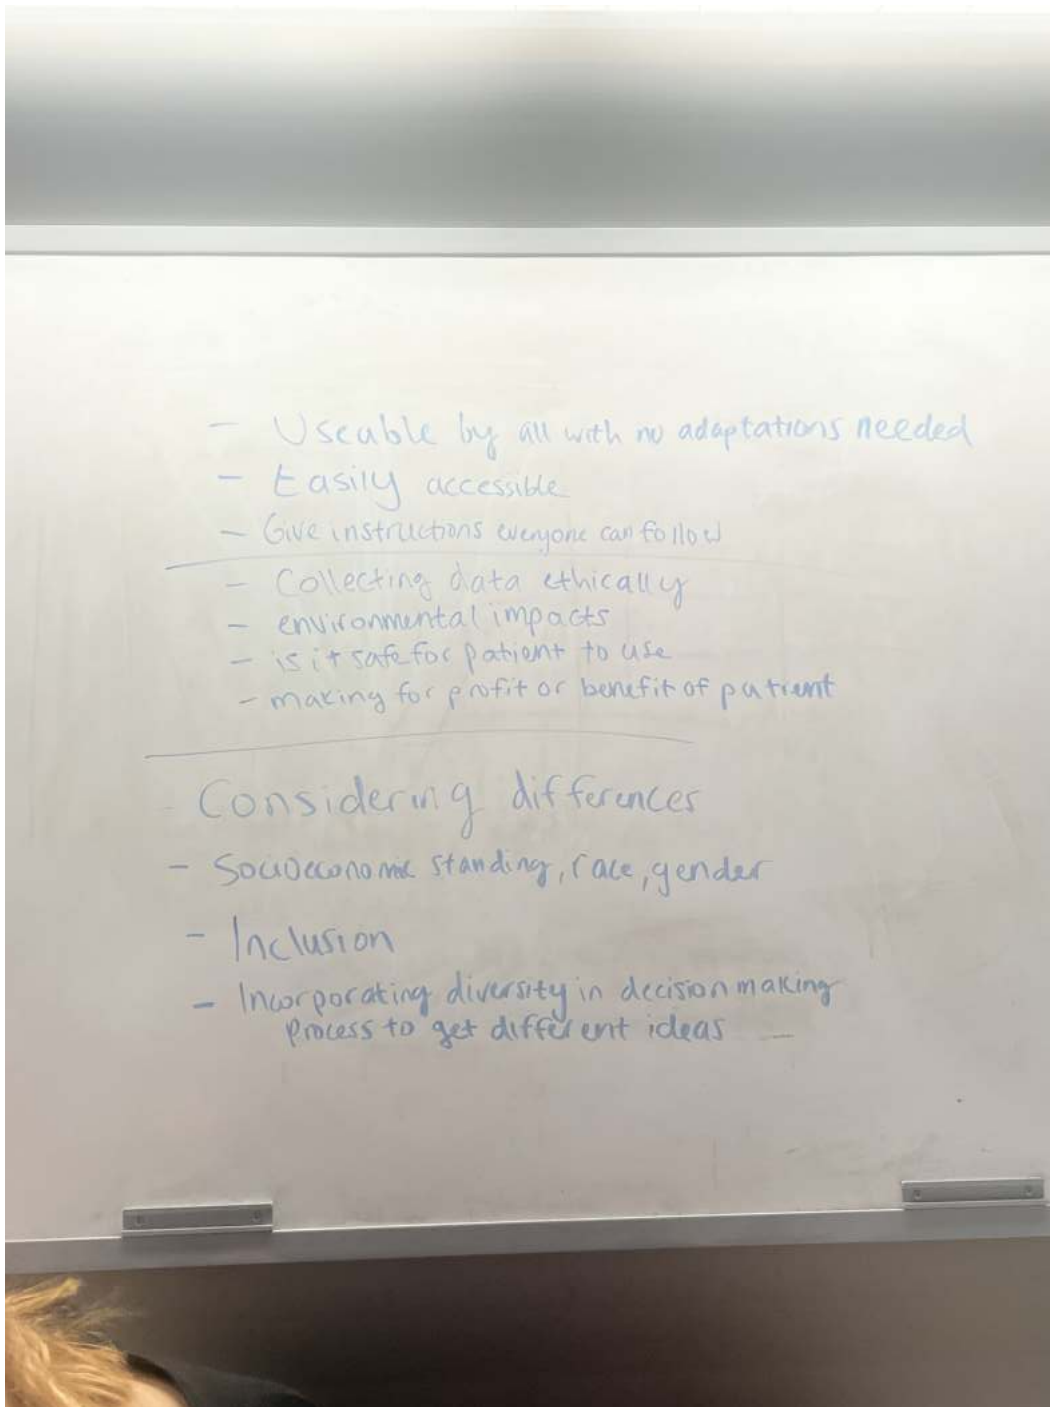 - Useable by all with no adaptations needed
- Easily accessible
- Give instructions everyone can follow
- Collecting data ethically
- environmental impacts
- is it safe for patient to use
- making for profit or benefit of patient
- Considering differences
- Socioeconomic standing, race, gender
- Inclusion
- Incorporating diversity in decision making
process to get different ideas